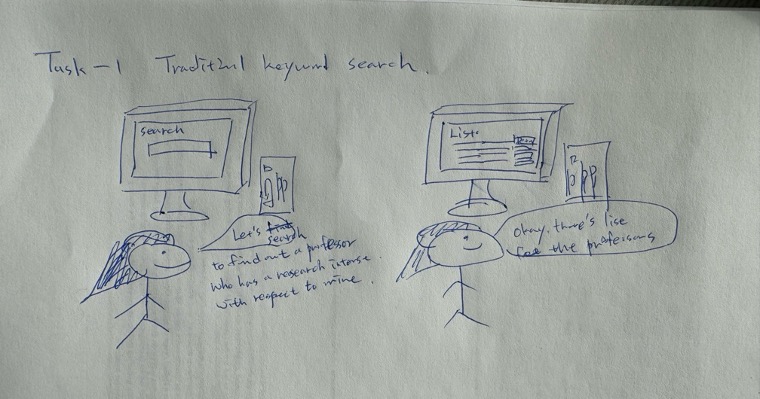 Task-1 Traditinl keyword search.
search
Let's find search
to find out a professor
who has a research interse
with respect to mine.
List
okay, there's lise
for the professors